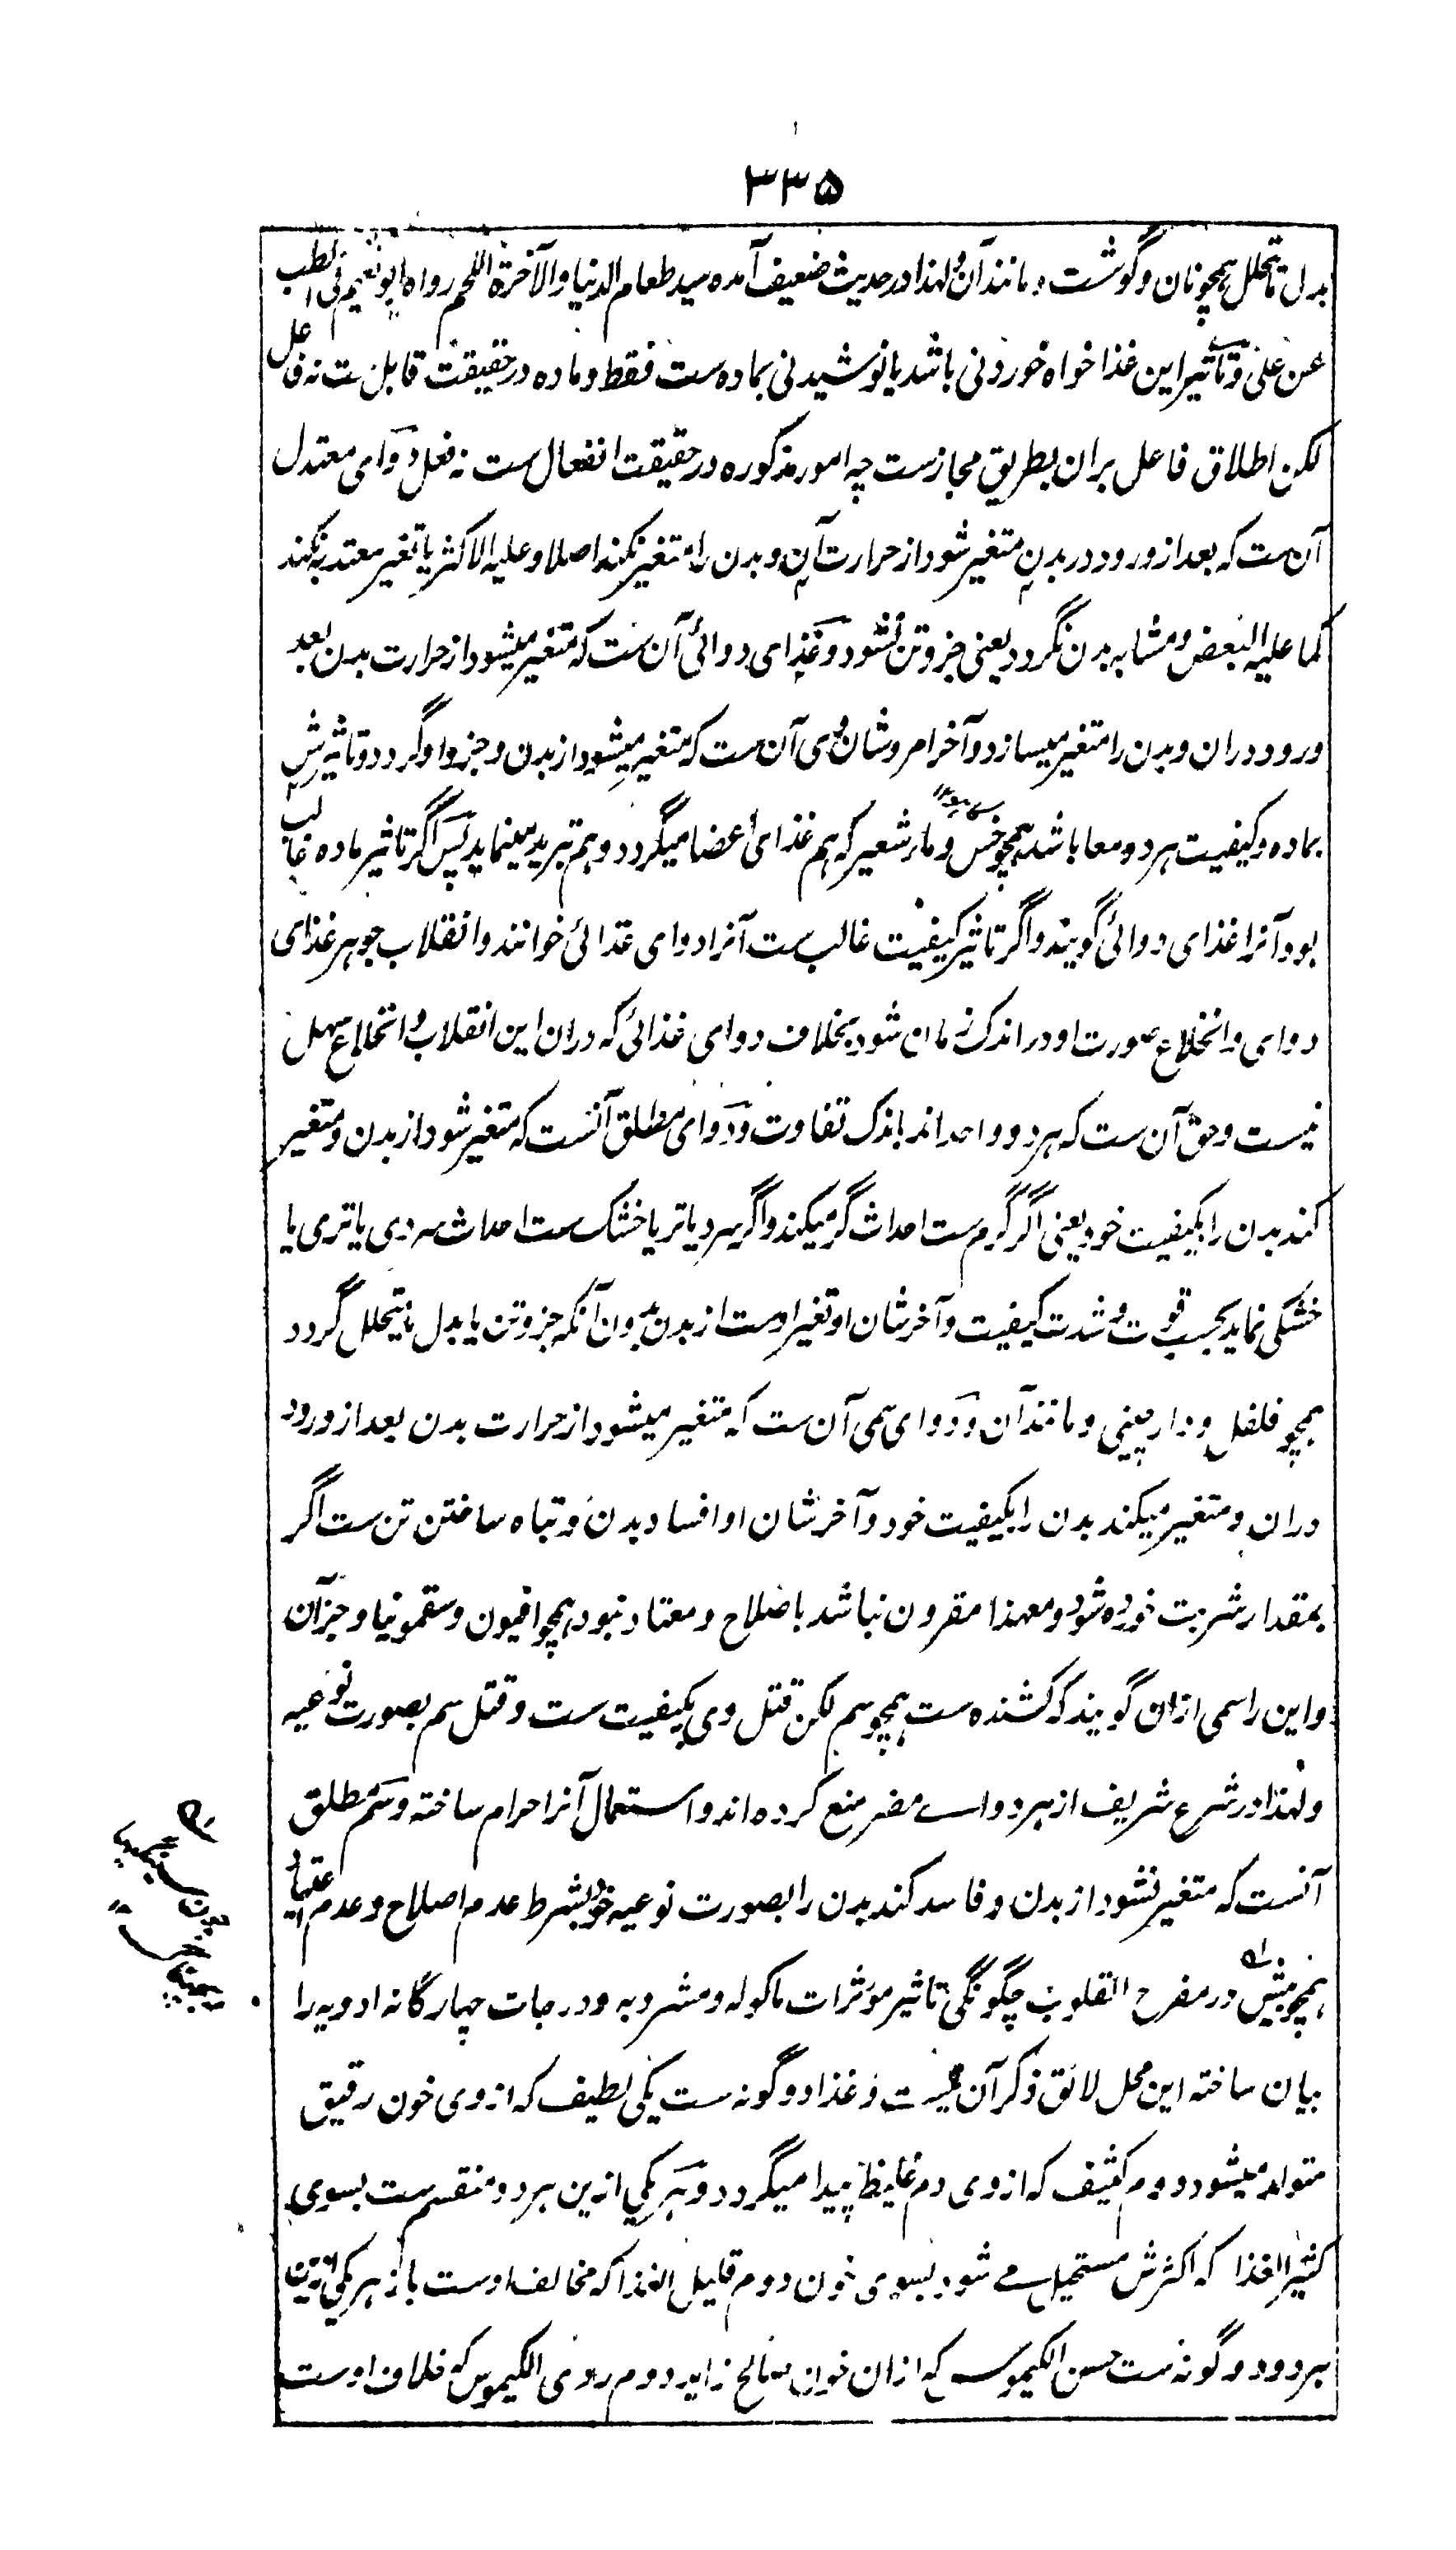 ۳۳۵
بدل ما تحلل همچو نان و گوشت و مانند آن و لهذا در حدیث ضعیف آمده سید طعام الدنیا و الآخرة اللحم رواه ابو نعیم فی الطب
عن علی و تاثیر این غذا خواه خوردنی باشد یا نوشیدنی بماده ست فقط و ماده در حقیقت قابل ست نه فاعل
لکن اطلاق فاعل بران بطریق مجاز ست چه امور مذکوره در حقیقت انفعال ست نه فعل و دوای معتدل
آن ست که بعد از ورود در بدن متغیر شود از حرارت آن و بدن را متغیر نکند اصلا و علیه الاکثر یا تغیر معتد به نکند
کما علیه البعض و مشابه بدن نگردد یعنی جزو تن نشود و غذای دوائی آن ست که متغیر میشود از حرارت بدن بعد
ورود دران و بدن را متغیر میسازد و آخر امر و شان وی آن ست که متغیر میشود از بدن و جزو او گردد و تاثیرش
بماده و کیفیت هر دو معا باشد همچو خس و ماء شعیر که هم غذای اعضا میگردد و هم تبرید مینماید پس اگر تاثیر ماده غالب
بود آنرا غذای دوائی گویند و اگر تاثیر کیفیت غالب ست آنرا دوای غذائی خوانند و انقلاب جوهر غذای
دوای و انخلاع صورت او در اندک زمان شود بخلاف دوای غذائی که دران این انقلاب و انخلاع سهل
نیست و حق آن ست که هر دو واحد اند باندک تفاوت و دوای مطلق آنست که متغیر شود از بدن و متغیر
کند بدن را بکیفیت خود یعنی اگر گرم ست احداث گرمی کند و اگر سرد یا تر یا خشک ست احداث سردی یا تری یا
خشکی نماید بحسب قوت و شدت کیفیت و آخر شان او تغیر اوست از بدن بدون آنکه جزو تن یا بدل ما یتحلل گردد
همچو فلفل و دارچینی و مانند آن و دوای سمی آن ست که متغیر میشود از حرارت بدن بعد از ورود
دران و متغیر میکند بدن را بکیفیت خود و آخر شان او افساد بدن و تباه ساختن تن ست اگر
بمقدار شربت خورده شود و معهذا مقرون نباشد باصلاح و معتاد نبود همچو افیون و سقمونیا و جز آن
و این را سمی ازان گویند که کشنده ست همچو سم لکن قتل وی بکیفیت ست و قتل سم بصورت نوعیه
و لهذا در شرع شریف از هر دوای مضر منع کرده اند و استعمال آنرا حرام ساخته و سم مطلق
آنست که متغیر نشود از بدن و فاسد کند بدن را بصورت نوعیه خود بشرط عدم اصلاح و عدم اعتیاد
همچو بیش در مفرح القلوب چگونگی تاثیر موثرات ماکوله و مشروبه و درجات چهارگانه ادویه را
بیان ساخته این محل لائق ذکر آن نیست و غذا دو گونه ست یکی لطیف که از وی خون رقیق
متولد میشود دوم کثیف که از وی دم غلیظ پیدا میگردد و هر یکی ازین هر دو منقسم ست بسوی
کثیر الغذا که اکثرش مستحیل می شود بسوی خون دوم قلیل الغذا که مخالف اوست باز هر یکی ازین
هر دو دو گونه ست حسن الکیموس که ازان خون صالح زاید دوم ردی الکیموس که خلاف اوست